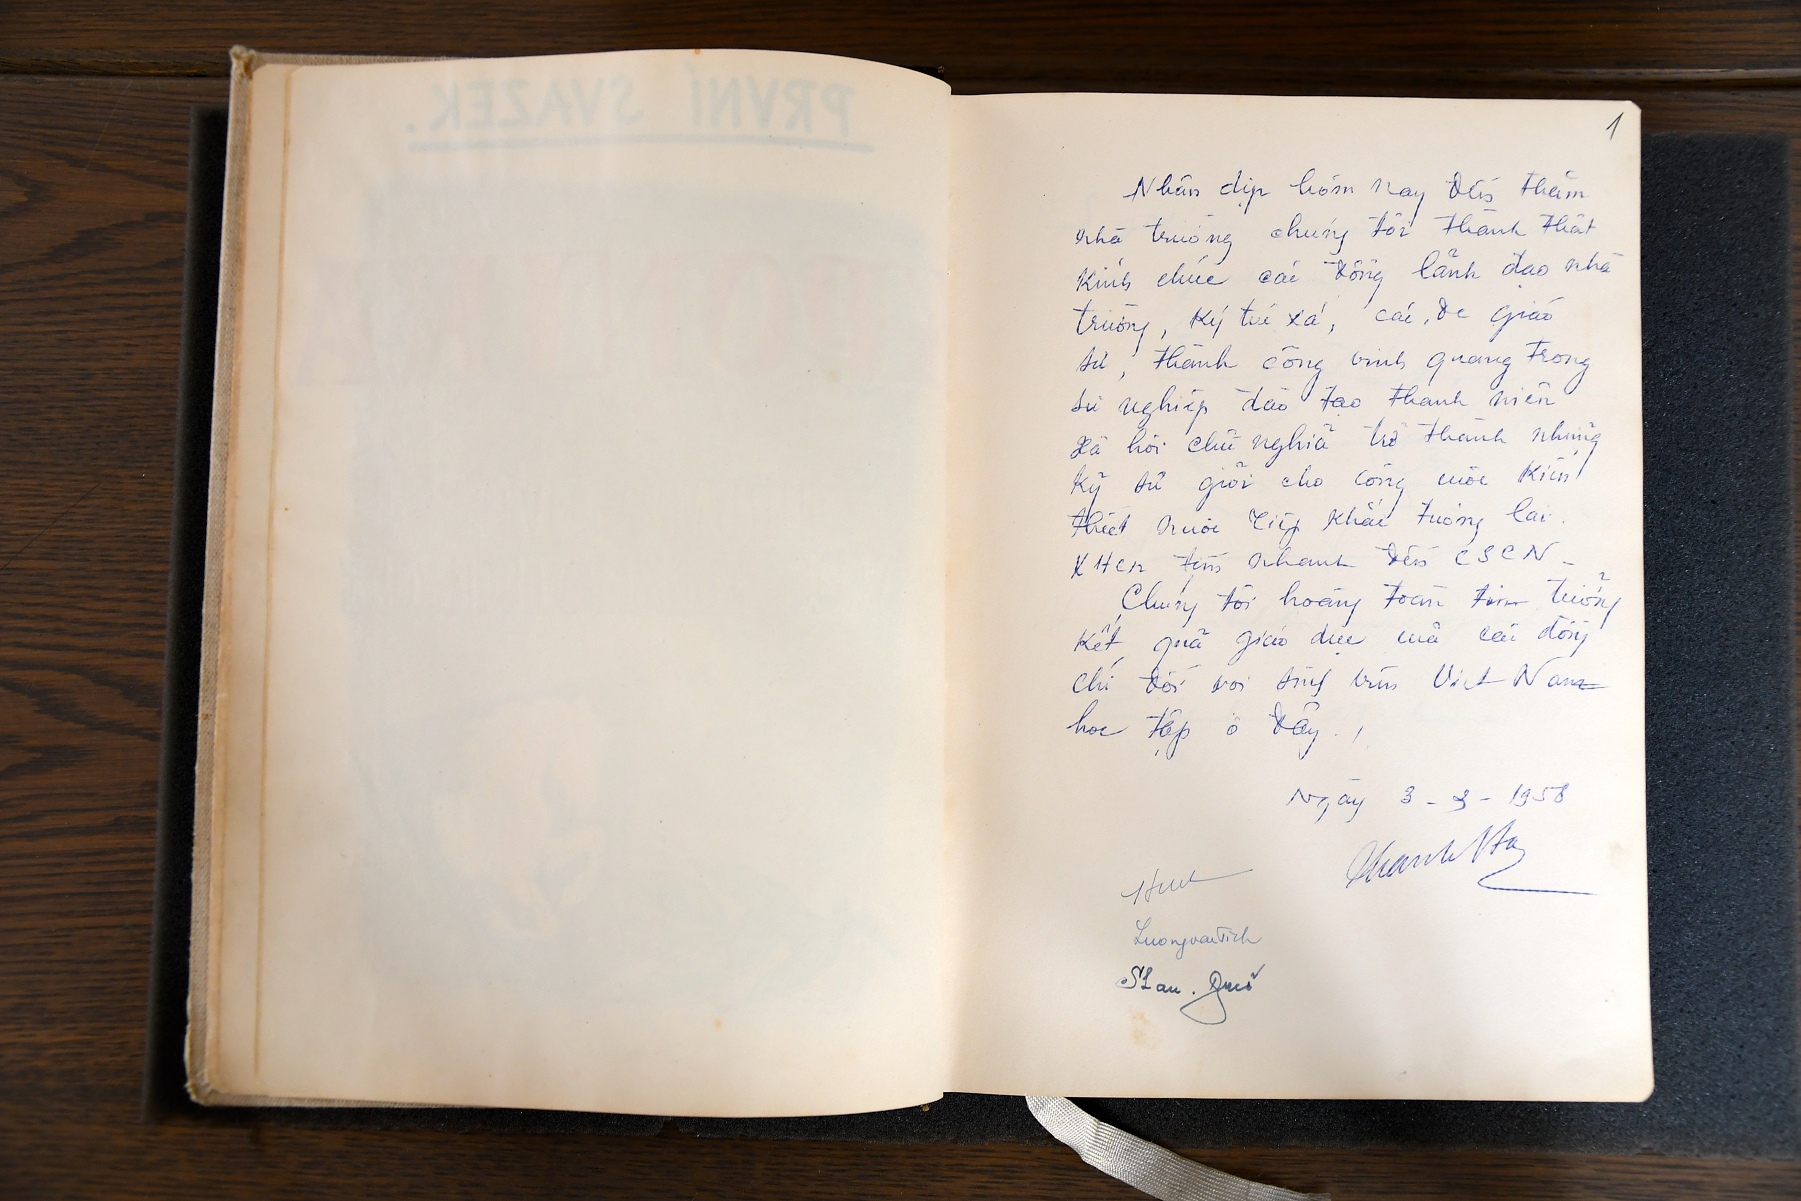 PRVNÍ SVAZEK.
1
Nhân dịp hôm nay đến thăm
nhà trường chúng tôi thành thật
kính chúc các đồng lãnh đạo nhà
trường, ký túc xá, các giáo
sư, thành công vinh quang trong
sự nghiệp đào tạo thanh niên
xã hội chủ nghĩa trở thành những
kỹ sư giỏi cho công cuộc kiến
thiết nước Tiệp Khắc tương lai.
tiến nhanh đến CSCN -
Chúng tôi hoàng toàn tin tưởng
kết quả giáo dục mà các đồng
chí đối với sinh viên Việt Nam
học tập ở đây.!
Ngày 3 - 9 - 1958
Luongvantich